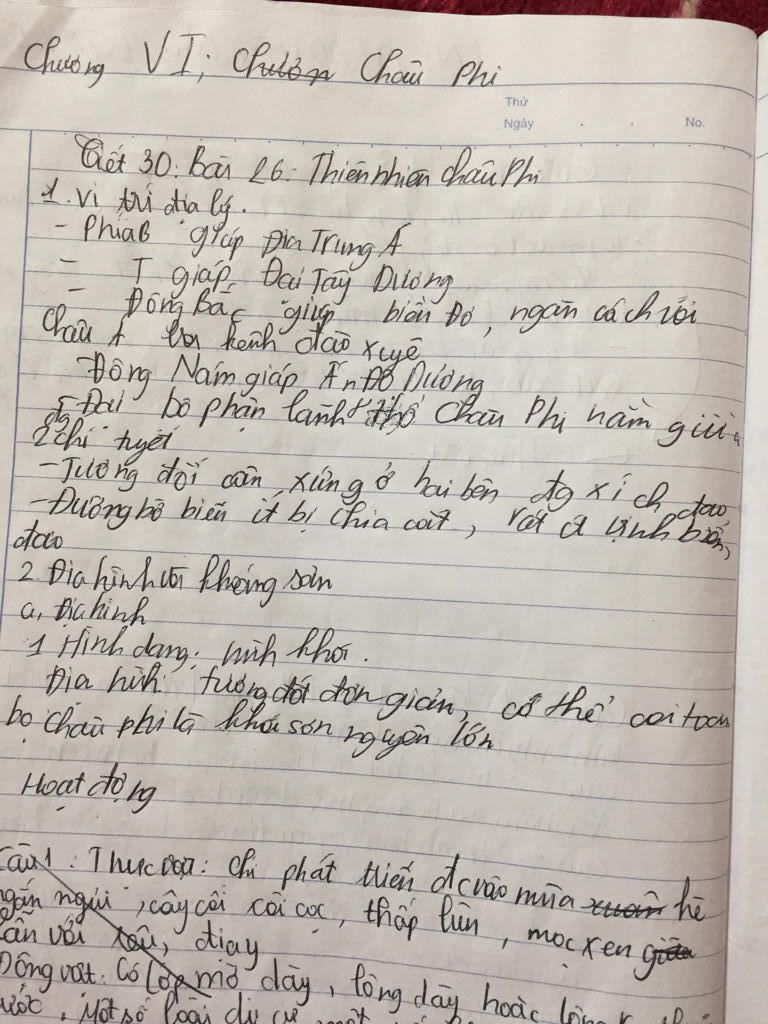 Chương VI; Chươn Châu Phi
Thứ
Ngày No.
Tiết 30: Bài 26: Thiên nhiên châu Phi
1. Vị trí địa lý.
- Phía B giáp Địa Trung Á
- T giáp Đại Tây Dương
- Đông Bắc giáp biển Đỏ, ngăn cách với
Châu Á bởi kênh đào xuyê
- Đông Nam giáp Ấn Độ Dương
- Đại bộ phận lãnh thổ Châu Phi nằm giữa
2 chí tuyết
- Tương đối cân xứng ở hai bên đg xích đạo
- Đường bờ biển ít bị chia cắt, rất ít vịnh biển,
đảo
2. Địa hình và khoáng sản
a, Địa hình
1 Hình dạng: hình khối.
Địa hình tương đối đơn giản, có thể coi toàn
bộ châu phi là khối sơn nguyên lớn
Hoạt động
Câu 1: Thực vật: chỉ phát triển đc vào mùa xuân hè
ngắn ngủi, cây cối còi cọc, thấp lùn, mọc xen giữa
lẫn với rêu, địa y
Động vật: Có lớp mỡ dày, lông dày hoặc lông
nước, Một số loài di cư